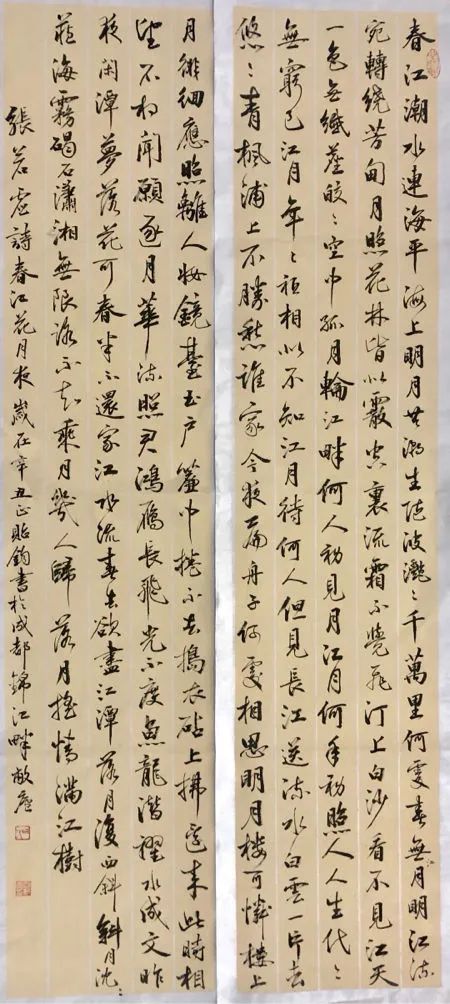 春江潮水連海平海上明月共潮生隨波灧〻千萬里何處春無月明江流
宛轉繞芳甸月照花林皆似霰空裏流霜不覺飛汀上白沙看不見江天
一色無纖塵皎〻空中孤月輪江畔何人初見月江月何年初照人人生代〻
無窮已江月年〻祗相似不知江月待何人但見長江送流水白雲一片去
悠〻青楓浦上不勝愁誰家今夜扁舟子何處相思明月樓可憐樓上
月徘徊應照離人妝鏡臺玉戶簾中捲不去搗衣砧上拂還來此時相
望不相聞願逐月華流照君鴻雁長飛光不度魚龍潛躍水成文昨
夜閑潭夢落花可春半不還家江水流春去欲盡江潭落月復西斜斜月沈〻
藏海霧碣石瀟湘無限路不知乘月幾人歸落月搖情滿江樹
張若虛詩春江花月夜歲在辛丑正貽鈞書於成都錦江畔